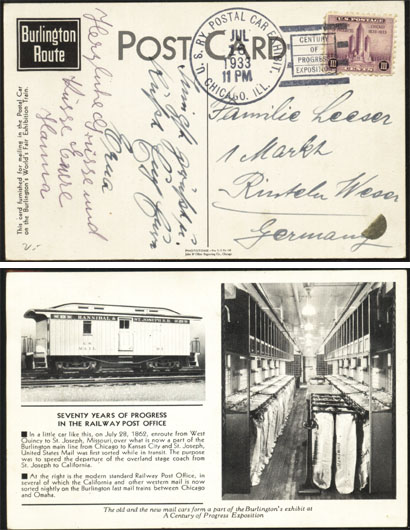 Burlington
Route
POST CARD
U. S. RY. POSTAL CAR EXHIBIT.
JUL
1933
11 PM
CHICAGO, ILL.
CENTURY
OF
PROGRESS
EXPOSITION
U.S. POSTAGE
III
CENTS
III
This card furnished for mailing in the Postal Car
on the Burlington's World's Fair Exhibition Train.
Herzliche Grüsse und
Küsse Eure
Hanna
Familie Leeser
1 Markt
Rinteln Weser
Germany
HANNIBAL & ST JOSEPH R.R.
U.S.
MAIL
SEVENTY YEARS OF PROGRESS
IN THE RAILWAY POST OFFICE
■ In a little car like this, on July 28, 1862, enroute from West
Quincy to St. Joseph, Missouri, over what is now a part of the
Burlington main line from Chicago to Kansas City and St. Joseph,
United States Mail was first sorted while in transit. The purpose
was to speed the departure of the overland stage coach from
St. Joseph to California.
■ At the right is the modern standard Railway Post Office, in
several of which the California and other western mail is now
sorted nightly on the Burlington fast mail trains between Chicago
and Omaha.
The old and the new mail cars form a part of the Burlington's exhibit at
A Century of Progress Exposition